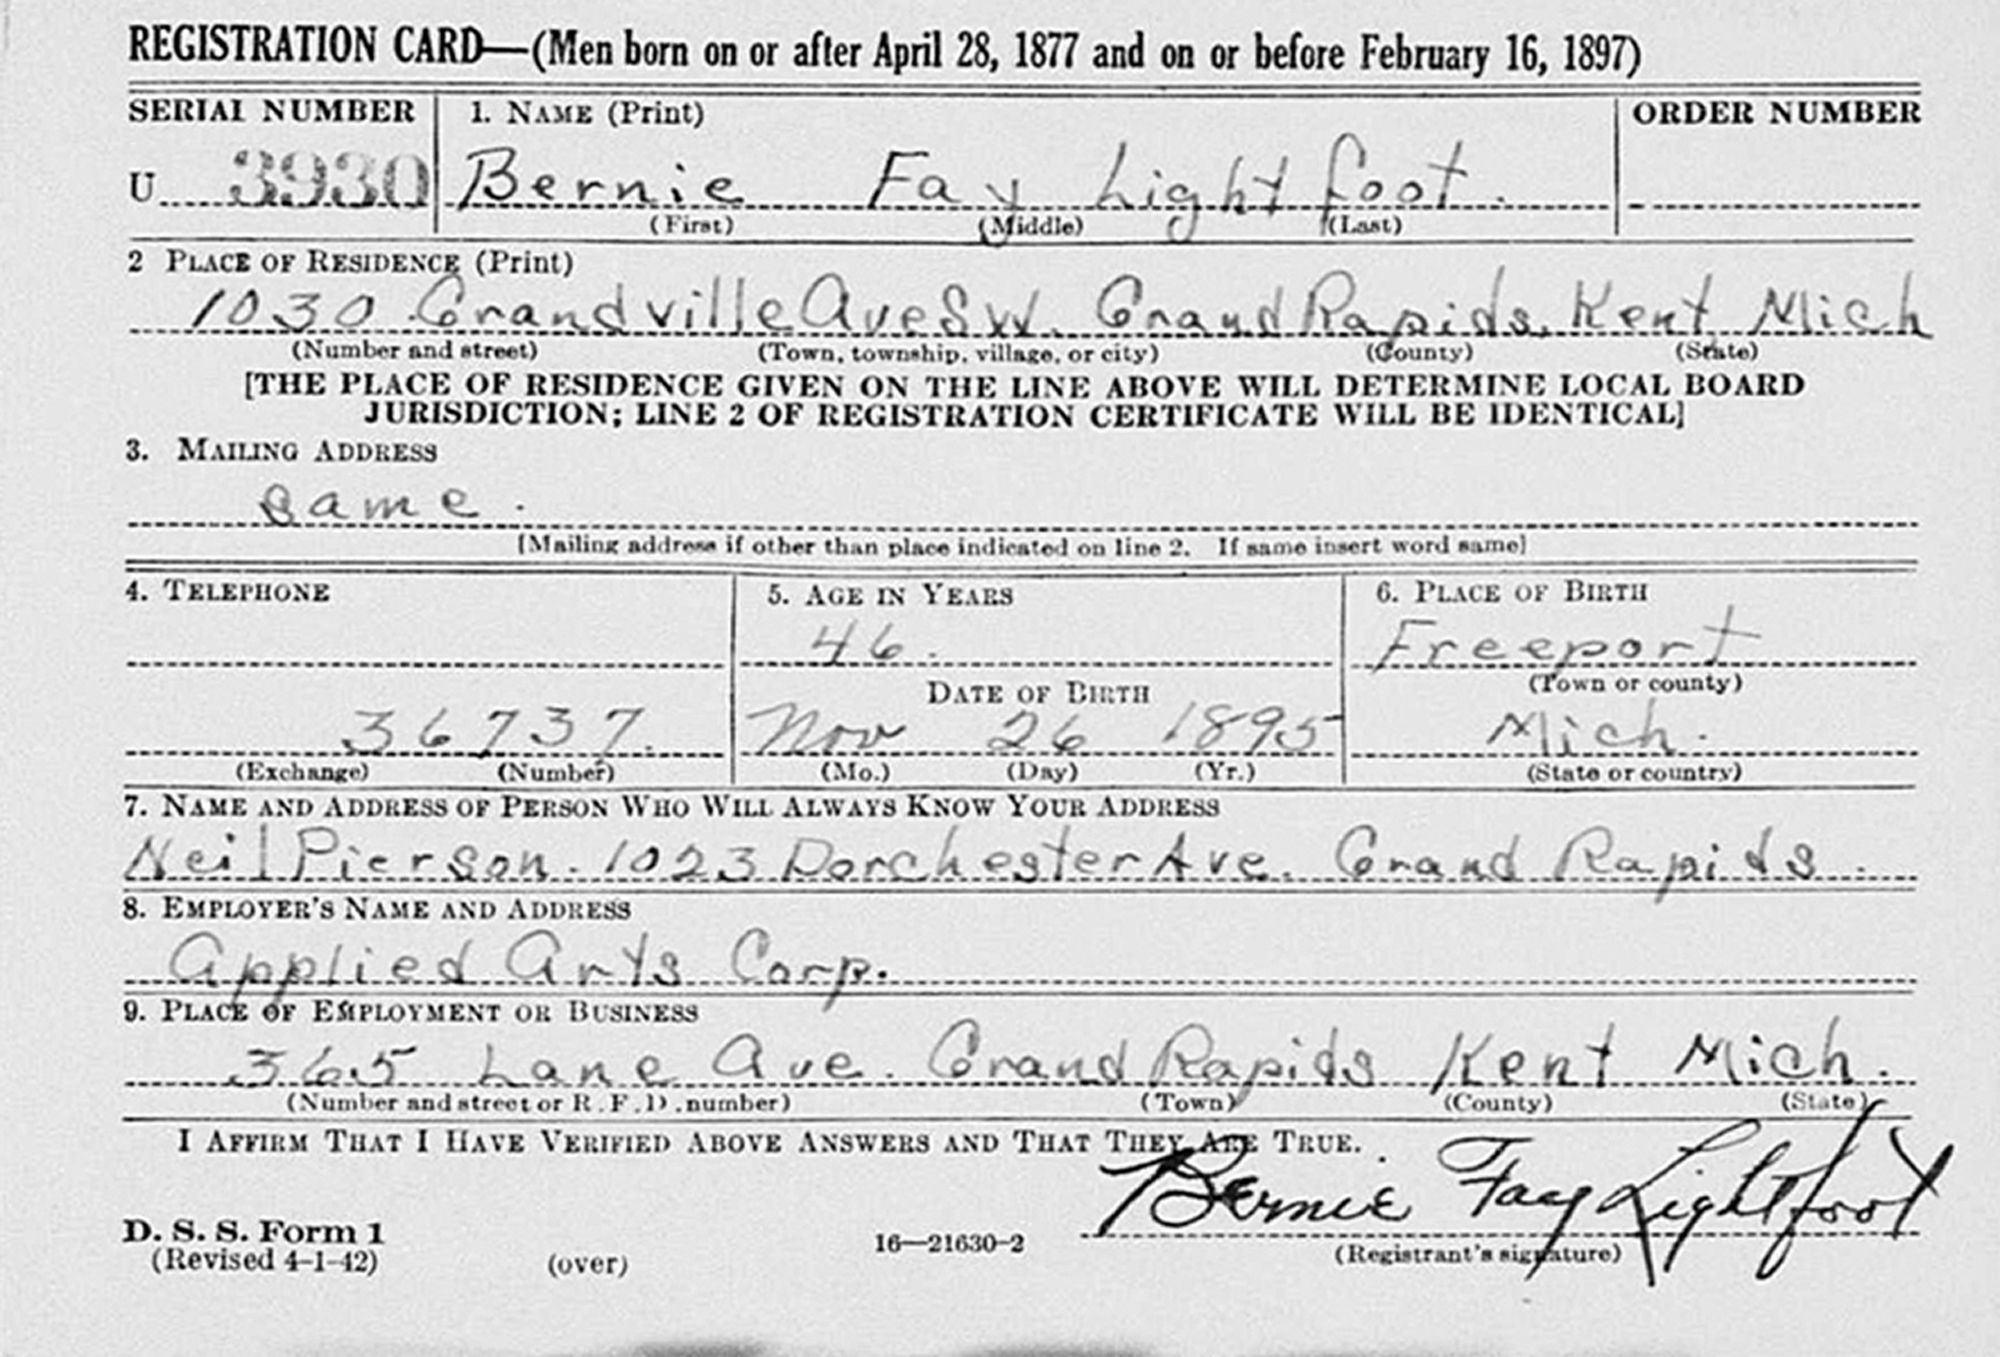 REGISTRATION CARD—(Men born on or after April 28, 1877 and on or before February 16, 1897)
SERIAL NUMBER 1. NAME (Print) ORDER NUMBER
U 3930 Bernie Fay Lightfoot.
(First) (Middle) (Last)
2 PLACE OF RESIDENCE (Print)
1030 Grandville Ave S.W. Grand Rapids, Kent Mich
(Number and street) (Town, township, village, or city) (County) (State)
[THE PLACE OF RESIDENCE GIVEN ON THE LINE ABOVE WILL DETERMINE LOCAL BOARD
JURISDICTION; LINE 2 OF REGISTRATION CERTIFICATE WILL BE IDENTICAL]
3. MAILING ADDRESS
same.
[Mailing address if other than place indicated on line 2. If same insert word same]
4. TELEPHONE 5. AGE IN YEARS 6. PLACE OF BIRTH
46. Freeport
DATE OF BIRTH (Town or county)
36737. Nov 26 1895 Mich.
(Exchange) (Number) (Mo.) (Day) (Yr.) (State or country)
7. NAME AND ADDRESS OF PERSON WHO WILL ALWAYS KNOW YOUR ADDRESS
Neil Pierson. 1023 Dorchester Ave. Grand Rapids.
8. EMPLOYER'S NAME AND ADDRESS
Applied Arts Corp.
9. PLACE OF EMPLOYMENT OR BUSINESS
365 Lane Ave. Grand Rapids Kent Mich.
(Number and street or R. F. D. number) (Town) (County) (State)
I AFFIRM THAT I HAVE VERIFIED ABOVE ANSWERS AND THAT THEY ARE TRUE.
Bernie Fay Lightfoot
D. S. S. Form 1
(Revised 4-1-42) (over) 16—21630-2 (Registrant's signature)